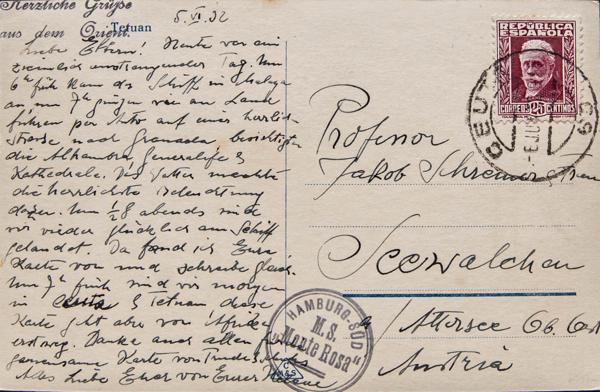 Herzliche Grüße
aus dem Orient.
Tetuan
5.VI.32
Liebe Eltern! Heute war ein
ziemlich anstrengender Tag. Um
6h früh kam das Schiff in Malaga
an, um 7h gingen wir an Land
fuhren per Auto auf einer herrlich
Strasse nach Granada, besichtigten
die Alhambra, Generalife &
Kathedrale. Das Wetter machte
die herrlichste Beleuchtung
dazu. Um ½8 abends sind
wir wieder glücklich am Schiff
gelandet. Da fand ich Eure
Karte vor und schreibe gleich.
Um 7h früh sind wir morgen
in Ceuta & Tetuan diese
Karte geht aber von Afrika
erst weg. Danke auch allen für
gemeinsame Karte von
Alles Liebe Euch von Eurer Helene
REPÚBLICA
ESPAÑOLA
CORREOS 25 CENTIMOS
CEUTA
Professor
Jakob Schremer
Seewalchen
a/ Attersee Ob. Öst
Austria
HAMBURG-SÜD
M.S.
„Monte Rosa"